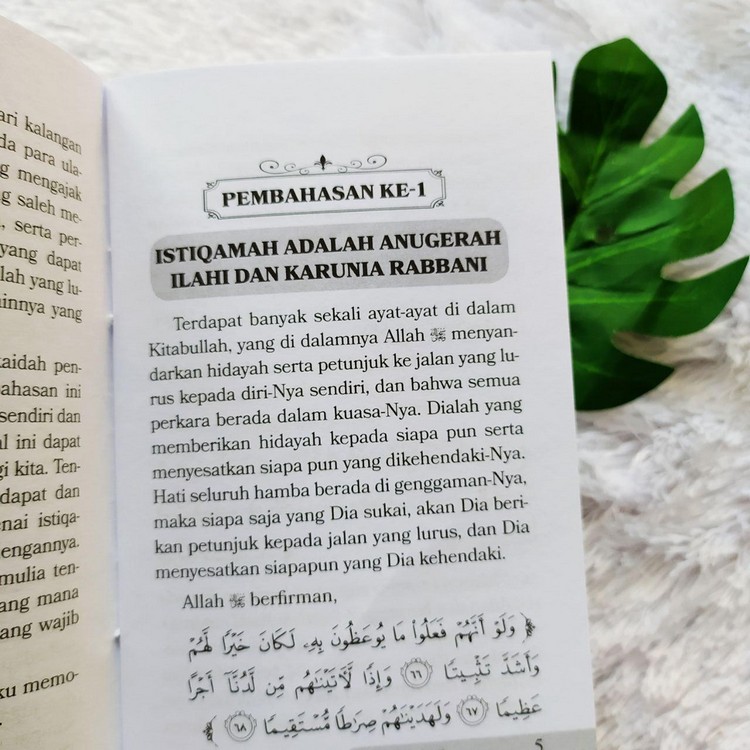 ari kalangan
da para ula-
g mengajak
g saleh me-
, serta per-
yang dapat
lah yang lu-
innya yang
kaidah pen-
bahasan ini
sendiri dan
al ini dapat
gi kita. Ten-
dapat dan
nai istiqa-
engannya.
mulia ten-
ang mana
ang wajib
ku memo-
PEMBAHASAN KE-1
ISTIQAMAH ADALAH ANUGERAH
ILAHI DAN KARUNIA RABBANI
Terdapat banyak sekali ayat-ayat di dalam
Kitabullah, yang di dalamnya Allah ﷻ menyan-
darkan hidayah serta petunjuk ke jalan yang lu-
rus kepada diri-Nya sendiri, dan bahwa semua
perkara berada dalam kuasa-Nya. Dialah yang
memberikan hidayah kepada siapa pun serta
menyesatkan siapa pun yang dikehendaki-Nya.
Hati seluruh hamba berada di genggaman-Nya,
maka siapa saja yang Dia sukai, akan Dia beri-
kan petunjuk kepada jalan yang lurus, dan Dia
menyesatkan siapapun yang Dia kehendaki.
Allah ﷻ berfirman,
﴿ وَلَوْ أَنَّهُمْ فَعَلُوا۟ مَا يُوعَظُونَ بِهِۦ لَكَانَ خَيْرًا لَّهُمْ
وَأَشَدَّ تَثْبِيتًا ٦٦ وَإِذًا لَّـَٔاتَيْنَـٰهُم مِّن لَّدُنَّآ أَجْرًا
عَظِيمًا ٦٧ وَلَهَدَيْنَـٰهُمْ صِرَٰطًا مُّسْتَقِيمًا ٦٨ ﴾
5